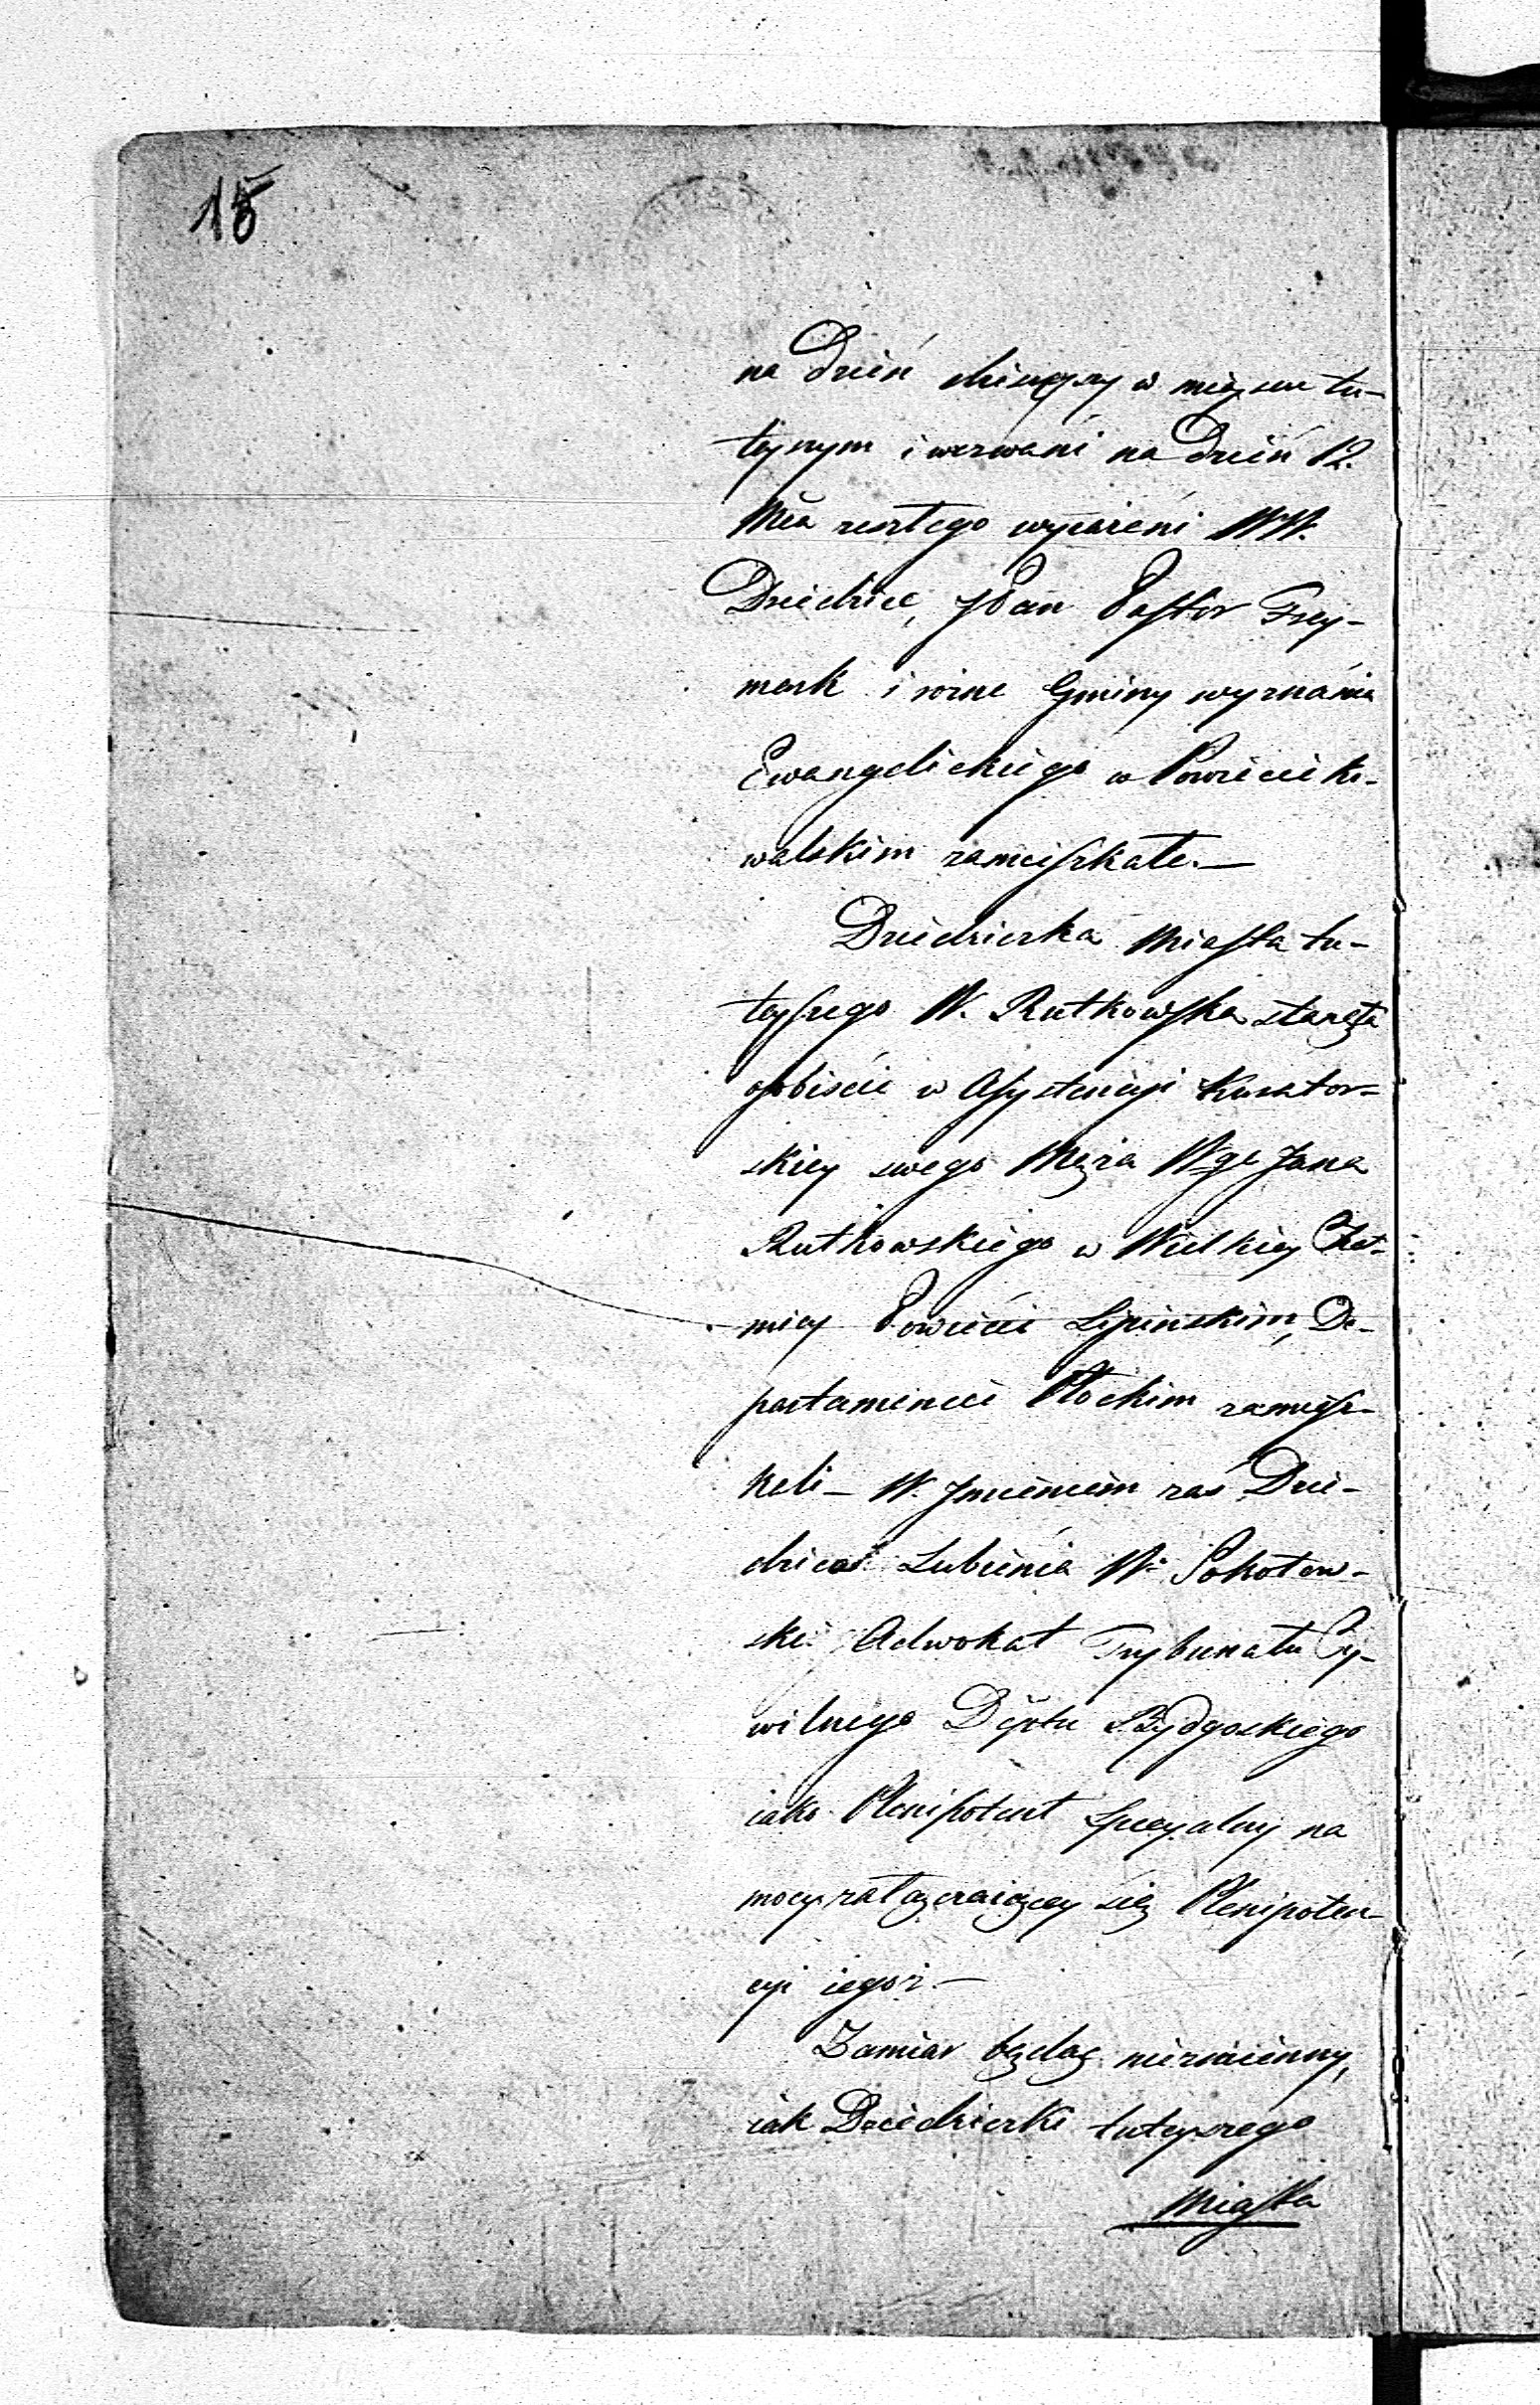 15
na Dzień dzisieyszy w mieyscu tu-
teyszym i wezwani na Dzień 12.
Mca zeszłego wyrażeni WW.
Dziedzice, JPan Pastor Frey-
mark i różne Gminy wyznania
Ewangelickiego w Powiecie Ko-
walskim zamieszkałe.—
Dziedziczka Miasta tu-
teyszego W. Rutkowska stanęła
osobiście w Assystencyi Kurator-
skiey swego Męża Wgo Jana
Rutkowskiego w Wielkiey Cheł-
micy Powiecie Lipińskim, De-
partamencie Płockim zamiesz-
kali – W. Jmieniem zaś Dzie-
dzica Lubienia W. Sokołow-
ski Adwokat Trybunału Cy-
wilnego Dptu Bydgoskiego
iako Plenipotent specyalny na
mocy załączaiącey się Plenipoten-
cyi iegoż.—
Zamiar będąc niezmienny,
iak Dziedziczki tuteyszego
Miasta